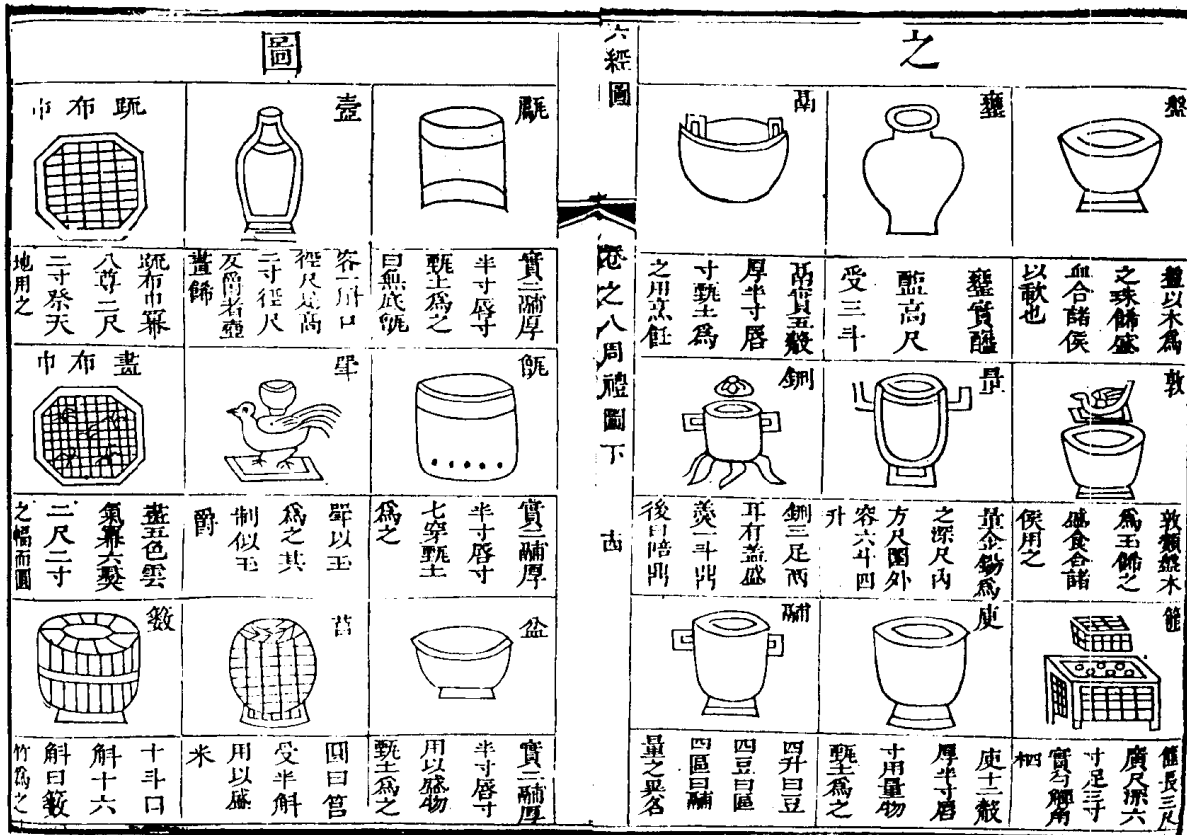 之
盤
盤以木爲
之珠餙盛
血合諸侯
以歃也
罋
罋實醯
醢高尺
受三斗
鬲
鬲實五觳
厚半寸唇
寸甄土爲
之用烹飪
敦
敦類盤木
爲玉餙之
盛食合諸
侯用之
量
量金錫爲
之深尺內
方尺圜外
容六斗四
升
鉶
鉶三足兩
耳有蓋盛
羹一斗鼎
後曰陪鼎
篚
篚長三尺
廣尺深六
寸足三寸
實勺觶角
柶
庾
庾十二觳
厚半寸唇
寸用量物
甄土爲之
鬴
四升曰豆
四豆曰區
四區曰鬴
量之異名
六經圖
卷之八周禮圖下
圖
甗
實二鬴厚
半寸唇寸
甄土爲之
曰無底甑
壺
容一斛口
徑尺足高
二寸徑尺
反爵者壺
畫餙
疏布巾
疏布巾冪
八尊二尺
二寸祭天
地用之
甑
實二鬴厚
半寸唇寸
七穿甄土
爲之
斝
斝以玉
爲之其
制似玉
爵
畫布巾
畫五色雲
氣冪六彝
二尺二寸
之幅而圜
盆
實二鬴厚
半寸唇寸
用以盛物
甄土爲之
筥
圓曰筥
受半斛
用以盛
米
籔
十斗曰
斛十六
斛曰籔
竹爲之